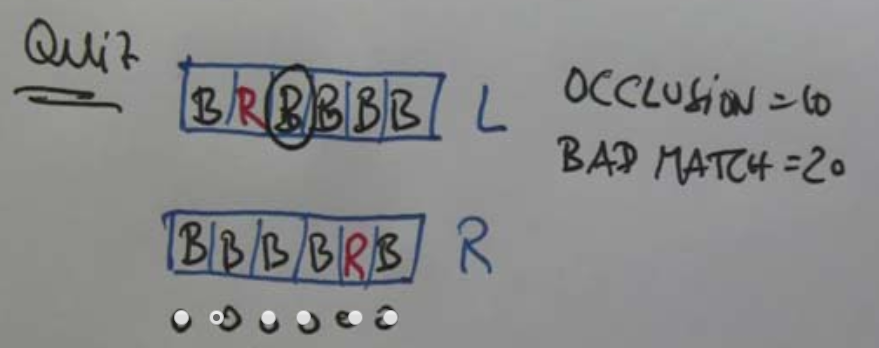 Quiz
B R B B B B L
OCCLUSION = 10
BAD MATCH = 20
B B B B R B R